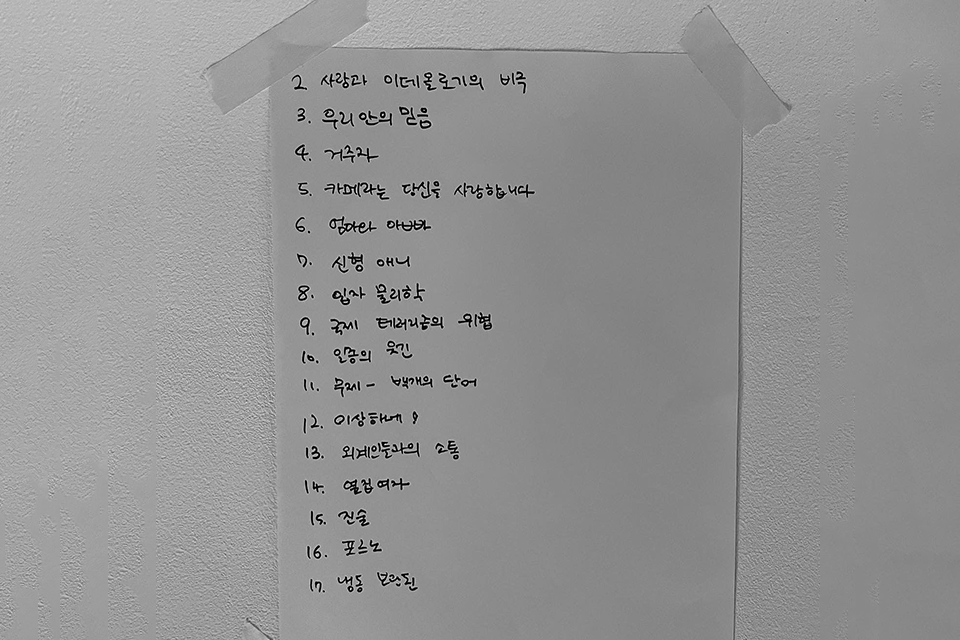 2 사랑과 이데올로기의 비극
3. 우리 안의 믿음
4. 거주자
5. 카메라는 당신을 사랑합니다
6. 엄마와 아빠
7. 신형 애니
8. 입자 물리학
9. 국제 테러리즘의 위협
10. 일종의 웃긴
11. 무제 - 백개의 단어
12. 이상하네?
13. 외계인들과의 소통
14. 옆집여자
15. 진술
16. 포르노
17. 냉동 보관된